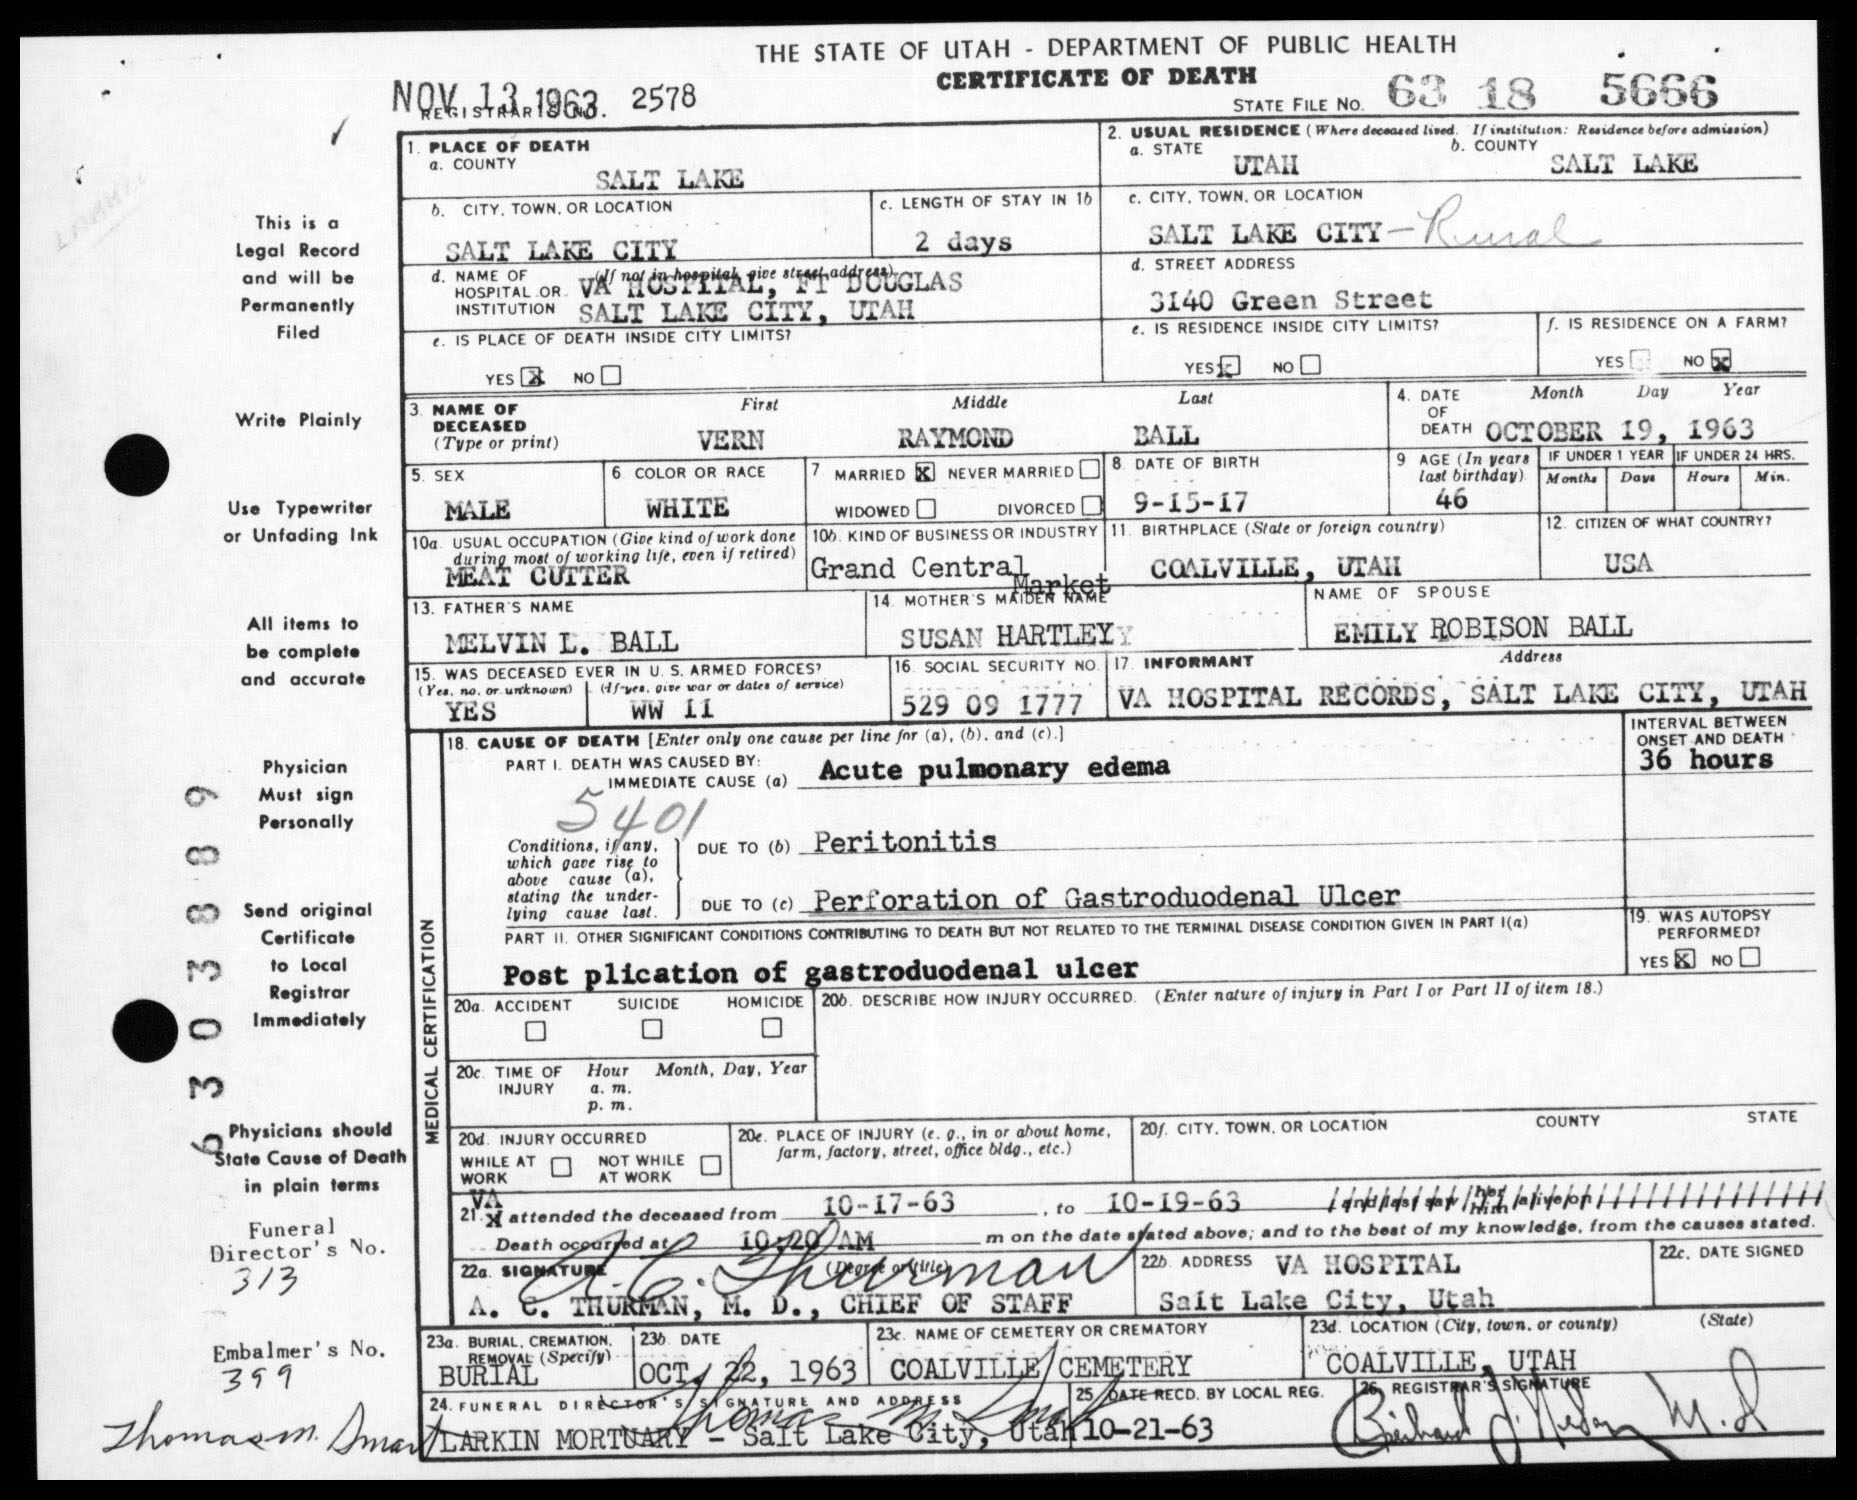 THE STATE OF UTAH - DEPARTMENT OF PUBLIC HEALTH
CERTIFICATE OF DEATH
NOV 13 1963 2578
REGISTRAR'S NO.
STATE FILE NO. 63 18 5666
This is a
Legal Record
and will be
Permanently
Filed
Write Plainly
Use Typewriter
or Unfading Ink
All items to
be complete
and accurate
Physician
Must sign
Personally
Send original
Certificate
to Local
Registrar
Immediately
Physicians should
State Cause of Death
in plain terms
Funeral
Director's No.
313
Embalmer's No.
399
Thomas M. Smart
6303889
1. PLACE OF DEATH
a. COUNTY
SALT LAKE
2. USUAL RESIDENCE (Where deceased lived. If institution: Residence before admission)
a. STATE
UTAH
b. COUNTY
SALT LAKE
b. CITY, TOWN, OR LOCATION
SALT LAKE CITY
c. LENGTH OF STAY IN 1b
2 days
c. CITY, TOWN, OR LOCATION
SALT LAKE CITY - Rural
d. NAME OF HOSPITAL OR INSTITUTION
(If not in hospital, give street address)
VA HOSPITAL, FT DOUGLAS
SALT LAKE CITY, UTAH
d. STREET ADDRESS
3140 Green Street
e. IS PLACE OF DEATH INSIDE CITY LIMITS?
YES X NO
e. IS RESIDENCE INSIDE CITY LIMITS?
YES X NO
f. IS RESIDENCE ON A FARM?
YES NO X
3. NAME OF DECEASED (Type or print)
First Middle Last
VERN RAYMOND BALL
4. DATE OF DEATH
Month Day Year
OCTOBER 19, 1963
5. SEX
MALE
6. COLOR OR RACE
WHITE
7. MARRIED X NEVER MARRIED
WIDOWED DIVORCED
8. DATE OF BIRTH
9-15-17
9 AGE (In years last birthday)
46
IF UNDER 1 YEAR
Months Days
IF UNDER 24 HRS.
Hours Min.
10a. USUAL OCCUPATION (Give kind of work done during most of working life, even if retired)
MEAT CUTTER
10b. KIND OF BUSINESS OR INDUSTRY
Grand Central Market
11. BIRTHPLACE (State or foreign country)
COALVILLE, UTAH
12. CITIZEN OF WHAT COUNTRY?
USA
13. FATHER'S NAME
MELVIN L. BALL
14. MOTHER'S MAIDEN NAME
SUSAN HARTLEY
NAME OF SPOUSE
EMILY ROBISON BALL
15. WAS DECEASED EVER IN U. S. ARMED FORCES?
(Yes, no, or unknown) (If yes, give war or dates of service)
YES WW II
16. SOCIAL SECURITY NO.
529 09 1777
17. INFORMANT Address
VA HOSPITAL RECORDS, SALT LAKE CITY, UTAH
MEDICAL CERTIFICATION
18. CAUSE OF DEATH [Enter only one cause per line for (a), (b), and (c).]
INTERVAL BETWEEN ONSET AND DEATH
PART I. DEATH WAS CAUSED BY:
IMMEDIATE CAUSE (a) Acute pulmonary edema
36 hours
5401
Conditions, if any, which gave rise to above cause (a), stating the underlying cause last.
DUE TO (b) Peritonitis
DUE TO (c) Perforation of Gastroduodenal Ulcer
PART II. OTHER SIGNIFICANT CONDITIONS CONTRIBUTING TO DEATH BUT NOT RELATED TO THE TERMINAL DISEASE CONDITION GIVEN IN PART I(a)
Post plication of gastroduodenal ulcer
19. WAS AUTOPSY PERFORMED?
YES X NO
20a. ACCIDENT SUICIDE HOMICIDE
20b. DESCRIBE HOW INJURY OCCURRED. (Enter nature of injury in Part I or Part II of item 18.)
20c. TIME OF INJURY
Hour Month, Day, Year
a. m.
p. m.
20d. INJURY OCCURRED
WHILE AT WORK NOT WHILE AT WORK
20e. PLACE OF INJURY (e. g., in or about home, farm, factory, street, office bldg., etc.)
20f. CITY, TOWN, OR LOCATION COUNTY STATE
VA
21. X attended the deceased from 10-17-63, to 10-19-63 and last saw her him alive on
Death occurred at 10:20 AM m on the date stated above; and to the best of my knowledge, from the causes stated.
22a. SIGNATURE (Degree or title)
A. C. Thurman
A. C. THURMAN, M. D., CHIEF OF STAFF
22b. ADDRESS VA HOSPITAL
Salt Lake City, Utah
22c. DATE SIGNED
23a. BURIAL, CREMATION, REMOVAL (Specify)
BURIAL
23b. DATE
OCT. 22, 1963
23c. NAME OF CEMETERY OR CREMATORY
COALVILLE CEMETERY
23d. LOCATION (City, town, or county) (State)
COALVILLE, UTAH
24. FUNERAL DIRECTOR'S SIGNATURE AND ADDRESS
Thomas M. Smart
LARKIN MORTUARY - Salt Lake City, Utah
25 DATE RECD. BY LOCAL REG.
10-21-63
26. REGISTRAR'S SIGNATURE
M.D